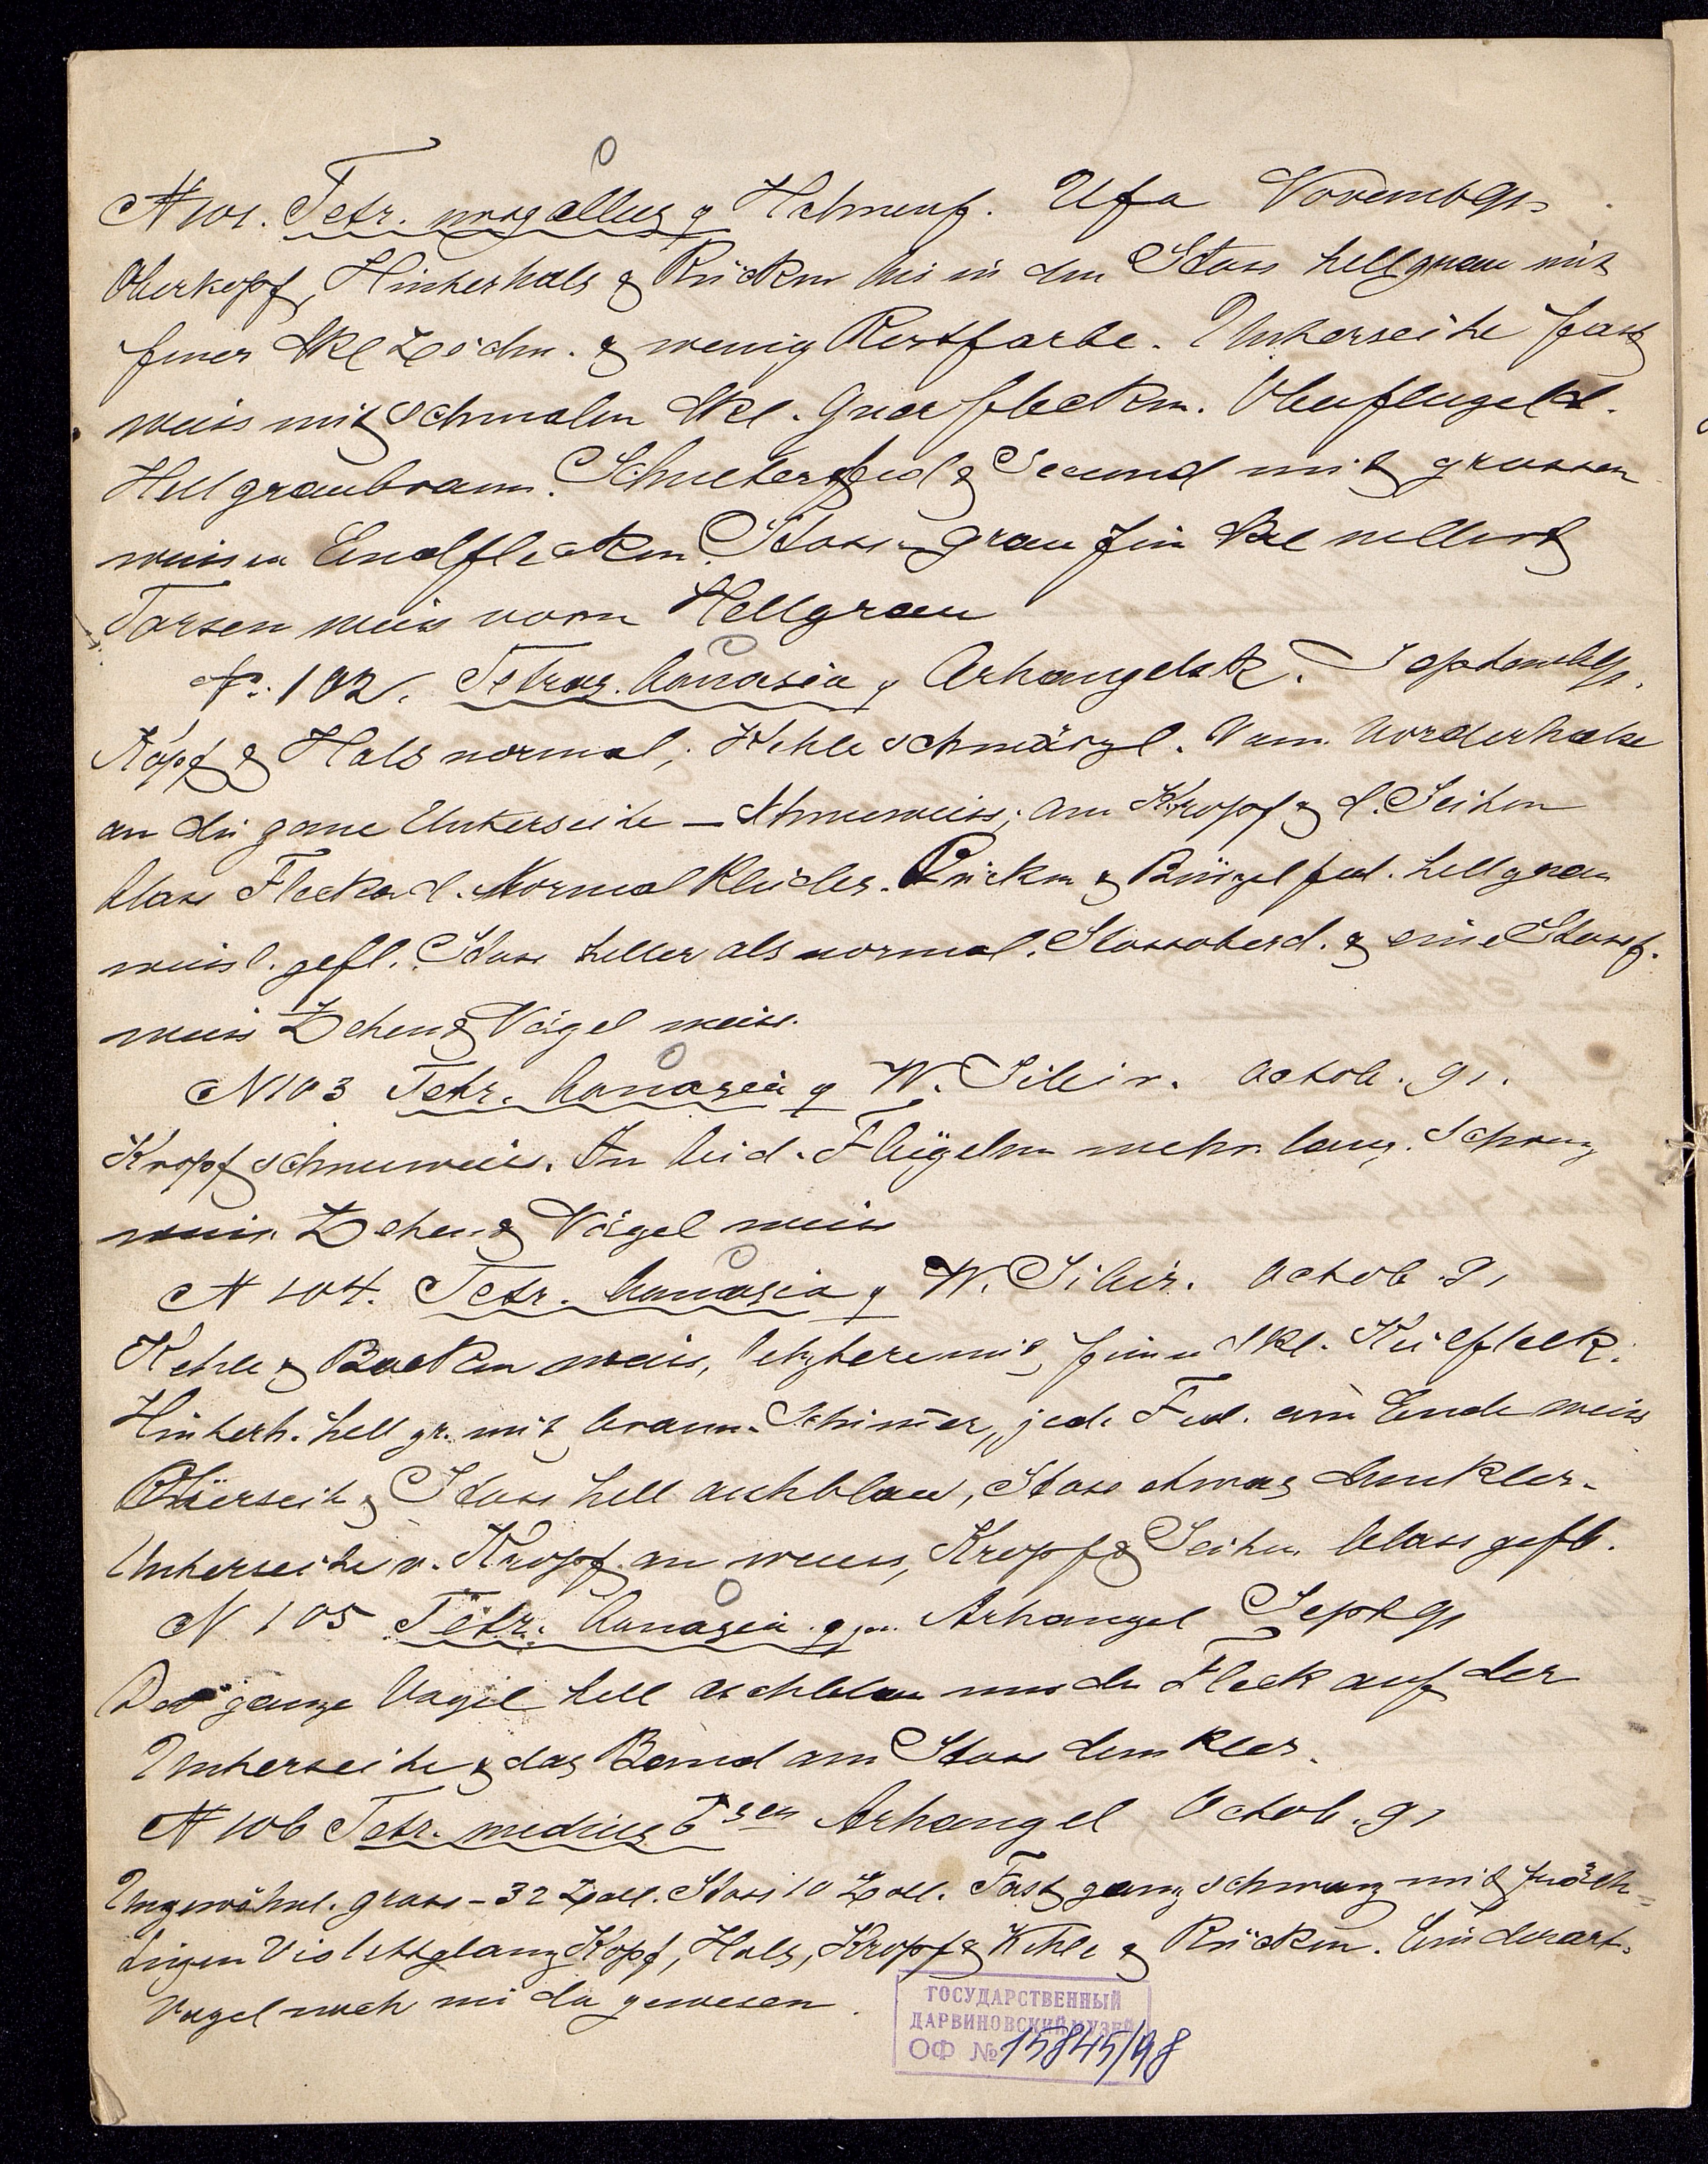 N 101. Tetr. urogallus ♀ Hahnenf. Ufa Novemb 91
Oberkopf, Hinterhals & Rücken bis in den Stoss hellgrau mit
feiner dkl Zeichn. & wenig Rostfarbe. Unterseite fast
weiss mit schmalen dkl. Querflecken. Oberflügeld.
Hellgraubraun. Schulterfed & Secund mit grossen
weissen Endflecken. Stoss grau fein dkl
Tarsen weiss vorn Hellgrau
N. 102. Tetras. bonasia ♀ Arhangelsk. Septemb 91.
Kopf & Hals normal, Kehle schwärzl. Vom Vorderhalse
an die ganze Unterseite – Schneeweiss; am Kropf & d. Seiten
blass Flecken d. Normalkleides. Rücken & Bürzelfed. hellgrau
weissl. gefl. Stoss heller als normal. Stossoberd. & eine Stossf.
weiss Zehen & Nägel weiss.
N 103 Tetr. bonasia ♀ W. Sibir. Octob. 91.
Kropf schneeweiss. In beid. Flügeln mehr. lang. Schwng
weiss Zehen & Nägel weiss
N 104. Tetr. bonasia ♀ W. Sibir. Octob 91
Kehle & Backen weiss, letztere mit feinen dkl. Keilfleck.
Hinterh. hell gr. mit braun. Schimer, jede Fed. am Ende weiss
Oberseite & Stoss hell aschblau, Stoss etwas dunkler.
Unterseite v. Kropf an weiss, Kropf & Seiten blass gefl.
N 105 Tetr. bonasia ♀ Arhangel Sept 91
Der ganze Vogel hell aschblau nur die Fleck auf der
Unterseite & das Band am Stoss dunkler.
N 106 Tetr. medius ♂ sen Arhangel Octob. 91
Ungewöhnl. gross – 32 Zoll. Stoss 10 Zoll. Fast ganz schwarz mit präch-
tigen Violettglanz Kopf, Hals, Kropf & Kehle & Rücken. Ein derart.
Vogel noch nie da gewesen.
ГОСУДАРСТВЕННЫЙ
ДАРВИНОВСКИЙ МУЗЕЙ
ОФ № 15845/98